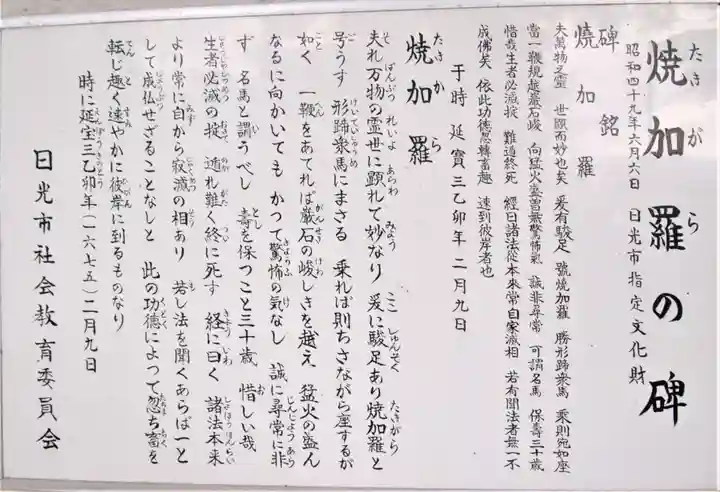 焼加羅の碑
たきがら
昭和四十九年六月六日 日光市指定文化財
碑銘
燒加羅
夫萬物之靈 世顕而妙也矣 爰有駿足 號燒加羅 勝形蹄衆馬 乗則宛如座
當一鞭規越巖石峻 向猛火盛曽無驚怖氣 誠非尋常 可謂名馬 保壽三十歳
惜哉生者必滅掟 難遁終死 經曰諸法従本来常自寂滅相 若有聞法者無一不
成佛矣 依此功徳忽轉畜趣 速到彼岸者也
于時 延寶三乙卯年 二月九日
焼加羅
たきがら
夫れ万物の霊世に顕れて妙なり 爰に駿足あり焼加羅と
号うす 形蹄衆馬にまさる 乗れば則ちさながら座するが
如く 一鞭をあてれば巌石の峻しきを越え 猛火の盛ん
なるに向かいても かつて驚怖の気なし 誠に尋常に非
ず 名馬と謂うべし 壽を保つこと三十歳 惜しい哉
生者必滅の掟 遁れ難く終に死す 経に曰く 諸法本来
より常に自から寂滅の相あり 若し法を聞くあらば一と
して成仏せざることなしと 此の功徳によって忽ち畜を
転じ趣く速やかに彼岸に到るものなり
時に延宝三乙卯年(一六七五)二月九日
日光市社会教育委員会